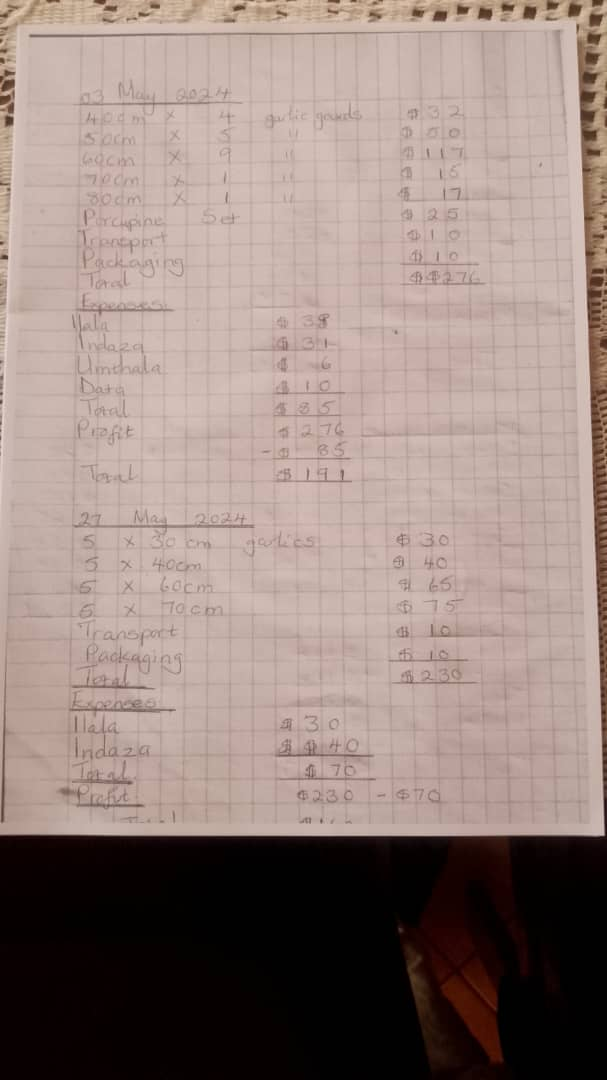 03 May 2024
40cm x 4 garlic gourds $32
50cm x 5 " $50
60cm x 9 " $117
70cm x 1 " $15
80cm x 1 " $17
Porcupine Set $25
Transport $10
Packaging $10
Total $$276
Expenses:
Ilala $38
Indaza $31
Umthala $6
Data $10
Total $85
Profit $276
-$ 85
Total $191
27 May 2024
5 x 30cm garlics $30
5 x 40cm $40
5 x 60cm $65
5 x 70cm $75
Transport $10
Packaging $10
Total $230
Expenses
Ilala $30
Indaza $$40
Total $70
Profit: $230 - $70
Total